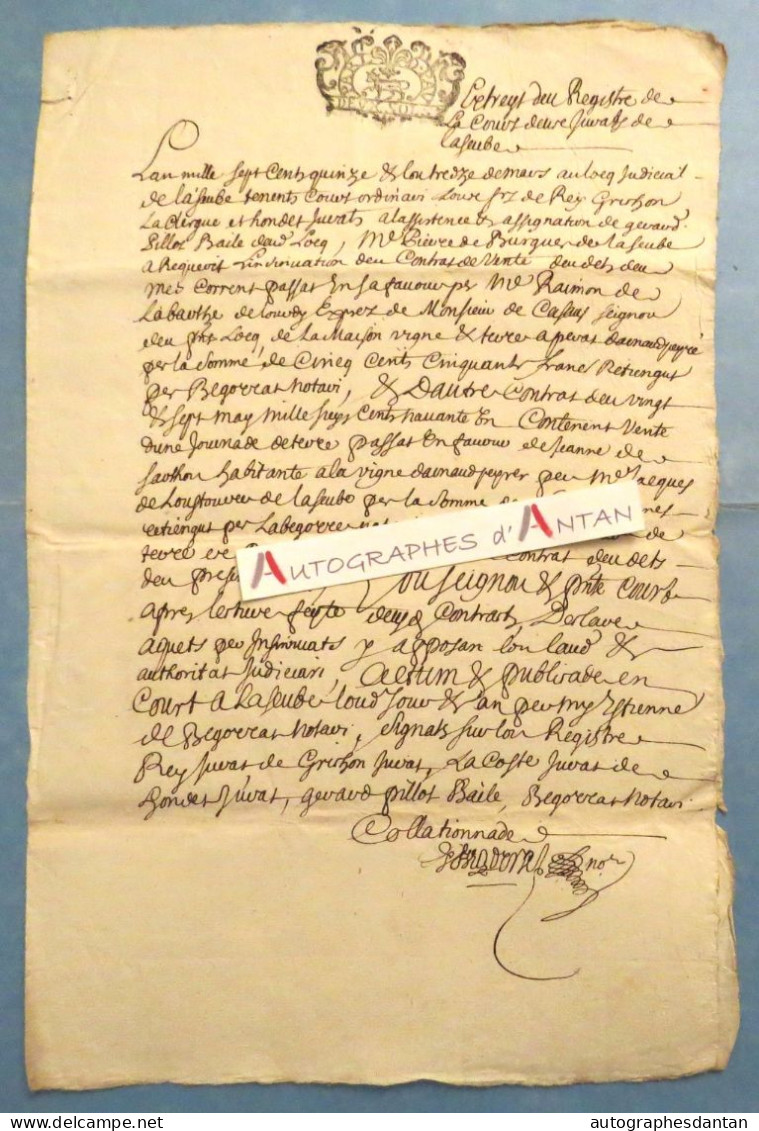 Extreyt deu Registre de
La Court deus Jurats de
laseube
Lan mille sept cents quinze & lou tredze de mars au locq Judicial
de laseube tenents Court ordinari Lous srs de Rey Grixhon
Laclergue et hondet Jurats a lassistence & assignation de geraud
Pillot Baile daud Locq, Me Pierre de Burgues de laseube
a Requerit Linsinuation deu Contract de Vente deu dets deu
mes Corrent passat En sa favour per Me Raimon de
Labarthe de Exprez de Monsieur de Casaus seignou
deu pnt Locq, de La Maison vigne & terre aperat darnaudpeyré
per la somme de Cincq Cents Cinquante francs Retiengut
per Begorrat notari, & Dautre Contrat deu vingt
& sept may mille seys Cents navante En Contenent Vente
dune Journade de terre passat En favour de Jeanne de
habitante a la vigne darnaudpeyrer per Me Jacques
de Loustouneu de laseube per la somme
retiengut per Labegorre
terre Contrat deu dets
deu Lou seignou & pnte Court
apres lecture feyte deusd Contracts Declare
aquets per Insinuats y apposan lou laud &
authoritat Judiciari, aestim & publicade en
Court a Laseube loud Jour & an per my Estienne
de Begorrat notari, signats sur lou Registre
Rey Jurat de Grixhon Jurat, La Coste Jurat de
hondet Jurat, geraud pillot Baile, Begorrat notari
Collationnade
nore
AUTOGRAPHES d'ANTAN
autographesdantan